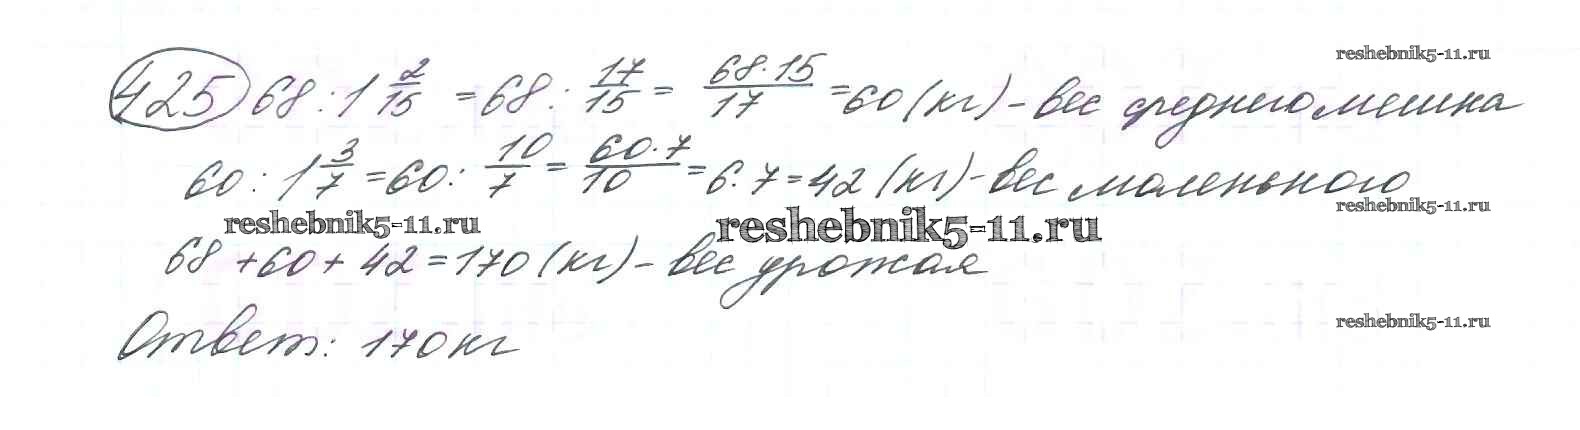 reshebnik5-11.ru
425 68 : 1 2/15 = 68 : 17/15 = 68·15/17 = 60 (кг) - вес среднего мешка
60 : 1 3/7 = 60 : 10/7 = 60·7/10 = 6·7 = 42 (кг) - вес маленького
reshebnik5-11.ru
reshebnik5-11.ru
reshebnik5-11.ru
68 + 60 + 42 = 170 (кг) - вес урожая
reshebnik5-11.ru
Ответ: 170 кг